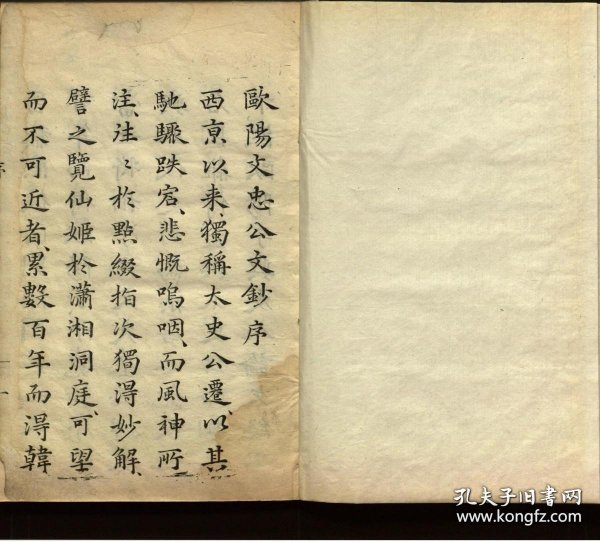 歐陽文忠公文鈔序
西亰以来、獨稱太史公遷、以其
馳驟跌宕、悲慨嗚咽、而風神所
注、往〻於點綴指次獨得妙解、
譬之覽仙姬於瀟湘洞庭、可望
而不可近者、累數百年而得韓
孔夫子旧书网
www.kongfz.com